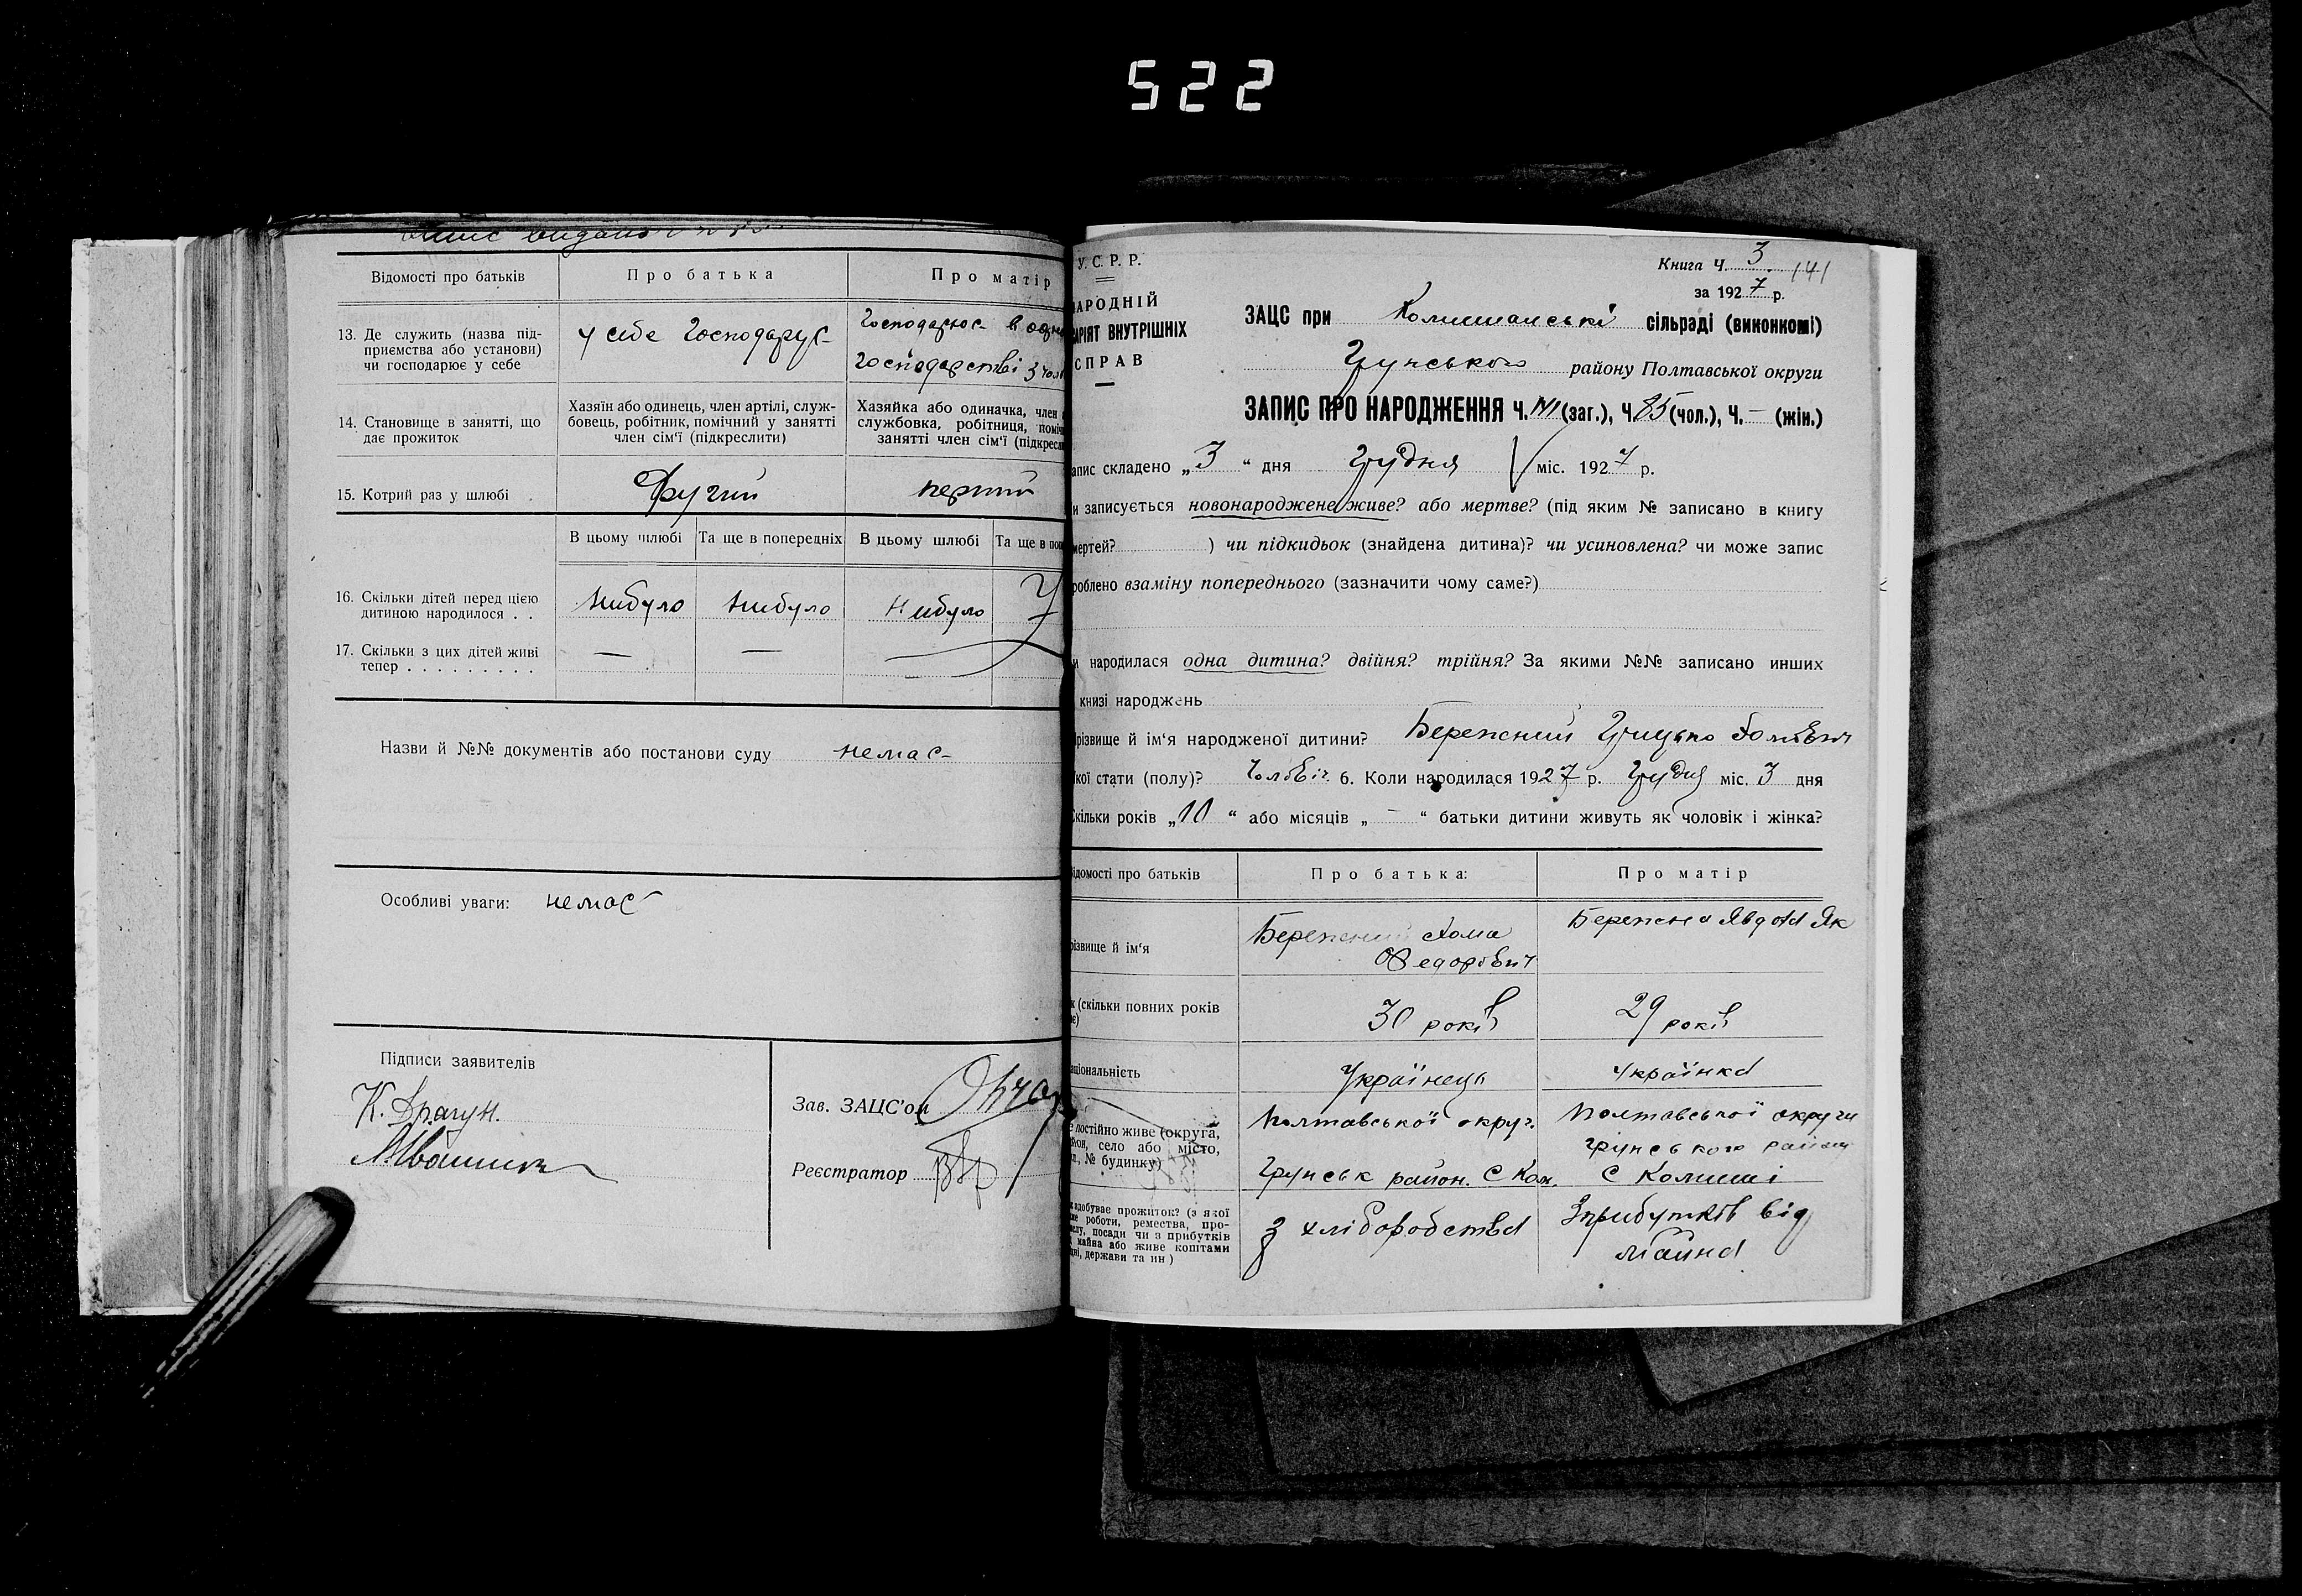 522
Відомості про батьків
Про батька
Про матір
13. Де служить (назва під-
приємства або установи)
чи господарює у себе
у себе господарує
господарює в
господарстві з
14. Становище в занятті, що
дає прожиток
Хазяїн або одинець, член артілі, служ-
бовець, робітник, помічний у занятті
член сім'ї (підкреслити)
Хазяйка або одиначка, член
службовка, робітниця,
занятті член сім'ї
15. Котрий раз у шлюбі
Другий
перший
В цьому шлюбі
Та ще в попередніх
В цьому шлюбі
Та ще в
16. Скільки дітей перед цією
дитиною народилося . .
Нибуло
Нибуло
Нибуло
17. Скільки з цих дітей живі
тепер . . . . . . . . .
—
—
Назви й №№ документів або постанови суду немає
Особливі уваги: немає
Підписи заявителів
К. Драгун.
Зав. ЗАЦС'ом
Реєстратор
У. С. Р. Р.
НАРОДНІЙ
ВНУТРІШНІХ
СПРАВ
Книга Ч. 3
141
за 1927 р.
ЗАЦС при Колишанські сільраді (виконкомі)
Грунського району Полтавської округи
ЗАПИС ПРО НАРОДЖЕННЯ Ч. 141 (заг.), Ч. 85 (чол.), Ч. — (жін.)
апис складено „3“ дня Грудня міс. 1927 р.
и записується новонароджене живе? або мертве? (під яким № записано в книгу
мертей? ) чи підкидьок (знайдена дитина)? чи усиновлена? чи може запис
роблено взаміну попереднього (зазначити чому саме?)
и народилася одна дитина? двійня? трійня? За якими №№ записано инших
книзі народжень
різвище й ім'я народженої дитини? Бережний Грицько Хомович
кої стати (полу)? Чоловіч. 6. Коли народилася 1927 р. Грудня міс. 3 дня
кільки років „10“ або місяців „—“ батьки дитини живуть як чоловік і жінка?
ідомості про батьків
Про батька:
Про матір
різвище й ім'я
Бережний Хома
Федорович
Бережна Явдоха Як
к (скільки повних років
є)
30 років
29 років
аціональність
Українець
Українка
е постійно живе (округа,
йон, село або місто,
№ будинку)
Полтавської округ.
Грунськ район. С Кол.
Полтавської округи
Грунського району
С Колиші
к здобуває прожиток? (з якої
роботи, ремества, про-
слу, посади чи з прибутків
майна або живе коштами
дні, держави та ин)
З хліборобства
З прибутків від
майна